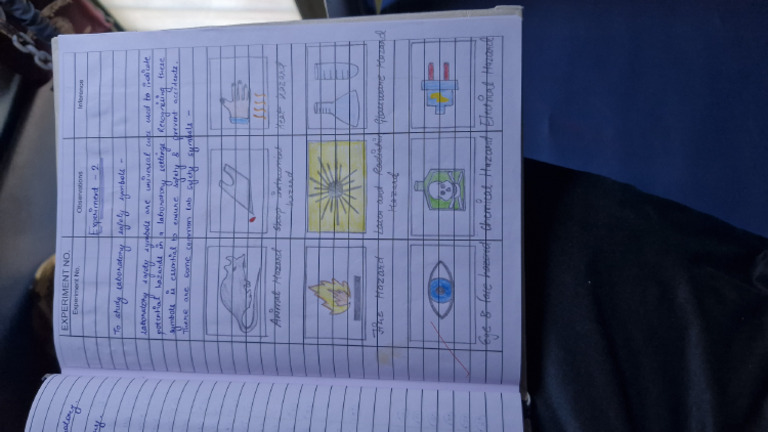 EXPERIMENT NO.
Experiment No. Observations Inference
Experiment - 2
To study laboratory safety symbols -
Laboratory safety symbols are universal cues used to indicate
potential hazards in a laboratory settings. Recognizing these
symbols is essential to ensure safety & prevent accidents.
There are some common lab safety symbols -
Animal Hazard Sharp instrument Heat Hazard
hazard
Fire Hazard Laser and Radiation Glassware Hazard
Hazard
Eye & face hazard Chemical Hazard Eletrical Hazard